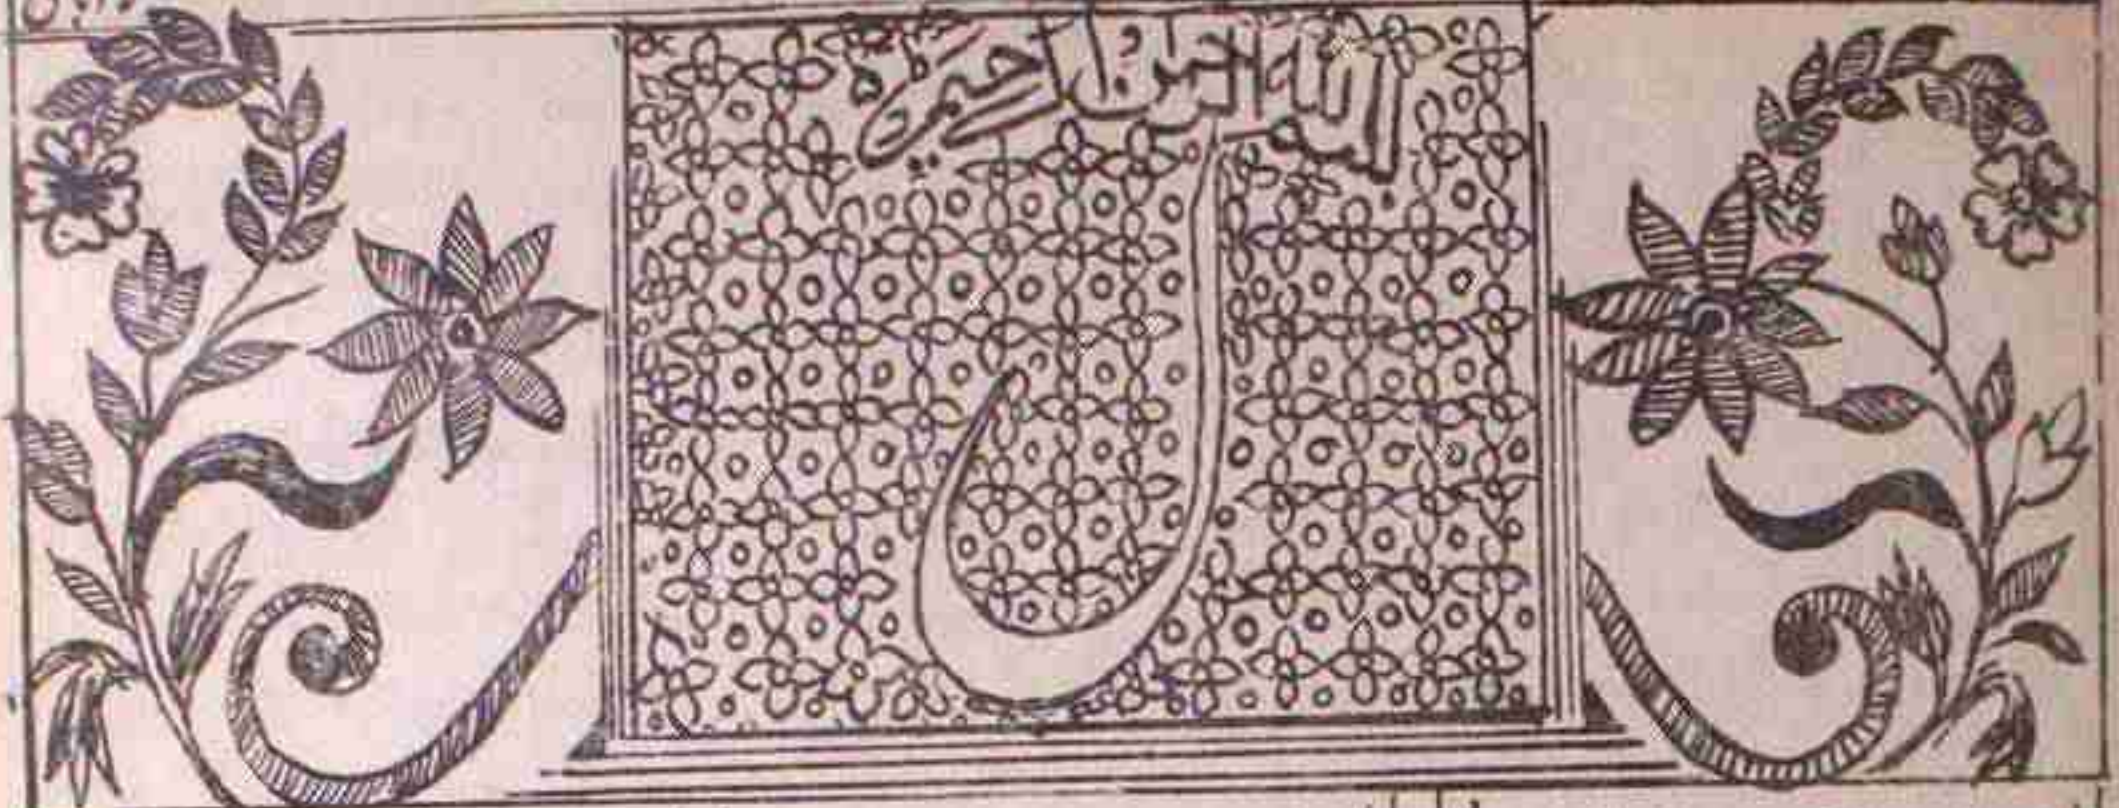 بسم الله الرحمن الرحيم
ل